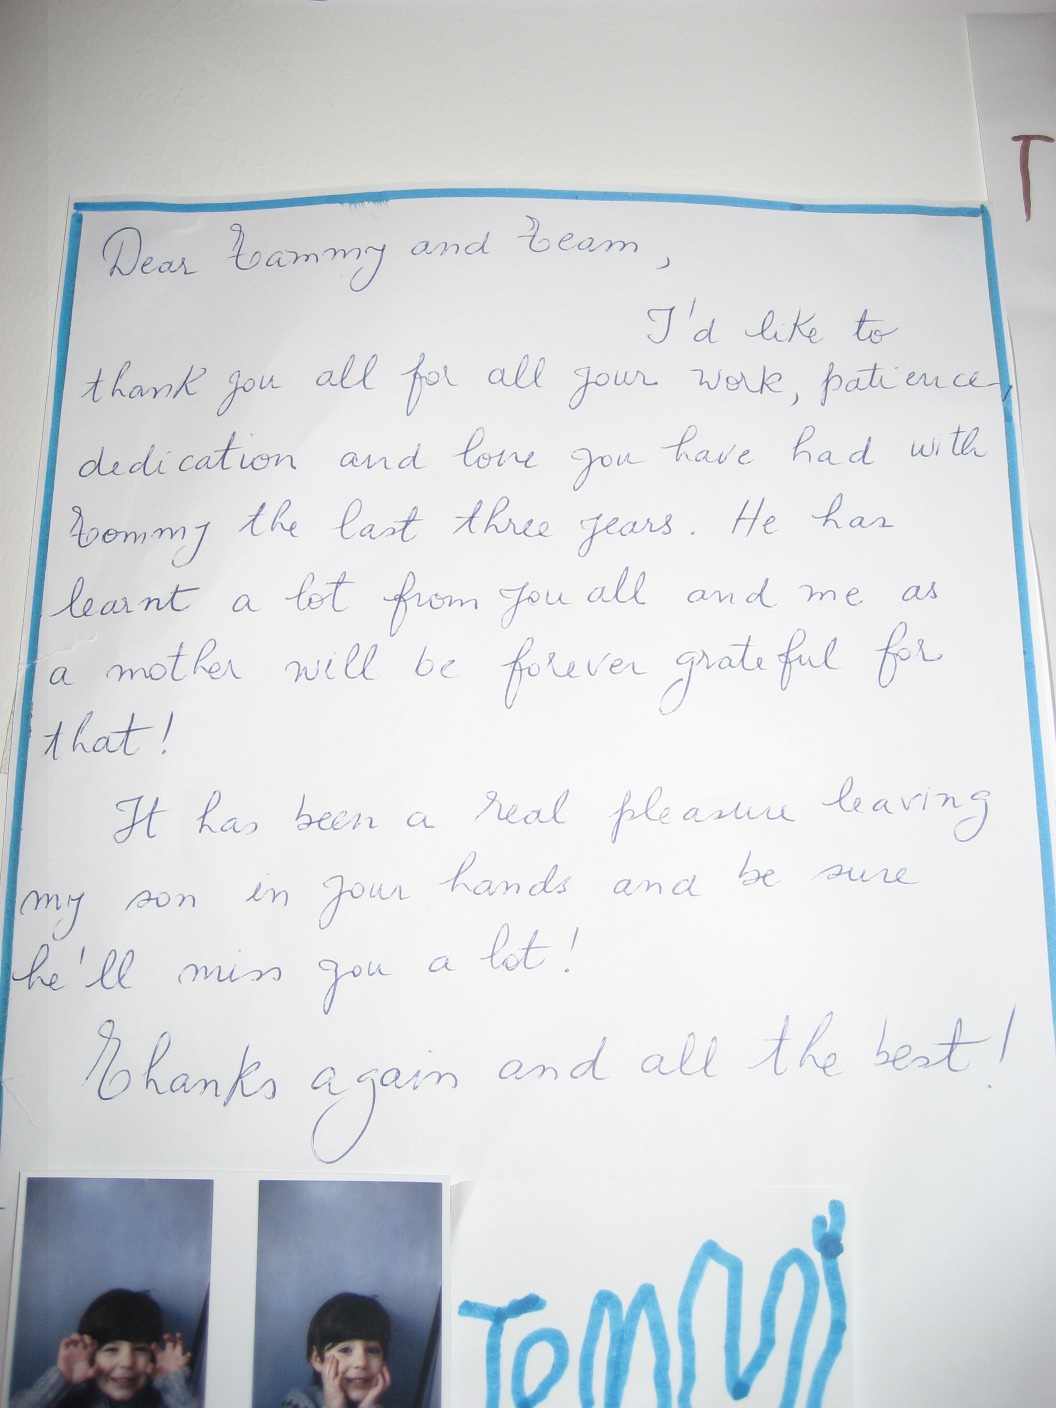 Dear Tammy and Team,
I'd like to
thank you all for all your work, patience,
dedication and love you have had with
Tommy the last three years. He has
learnt a lot from you all and me as
a mother will be forever grateful for
that!
It has been a real pleasure leaving
my son in your hands and be sure
he'll miss you a lot!
Thanks again and all the best!
T